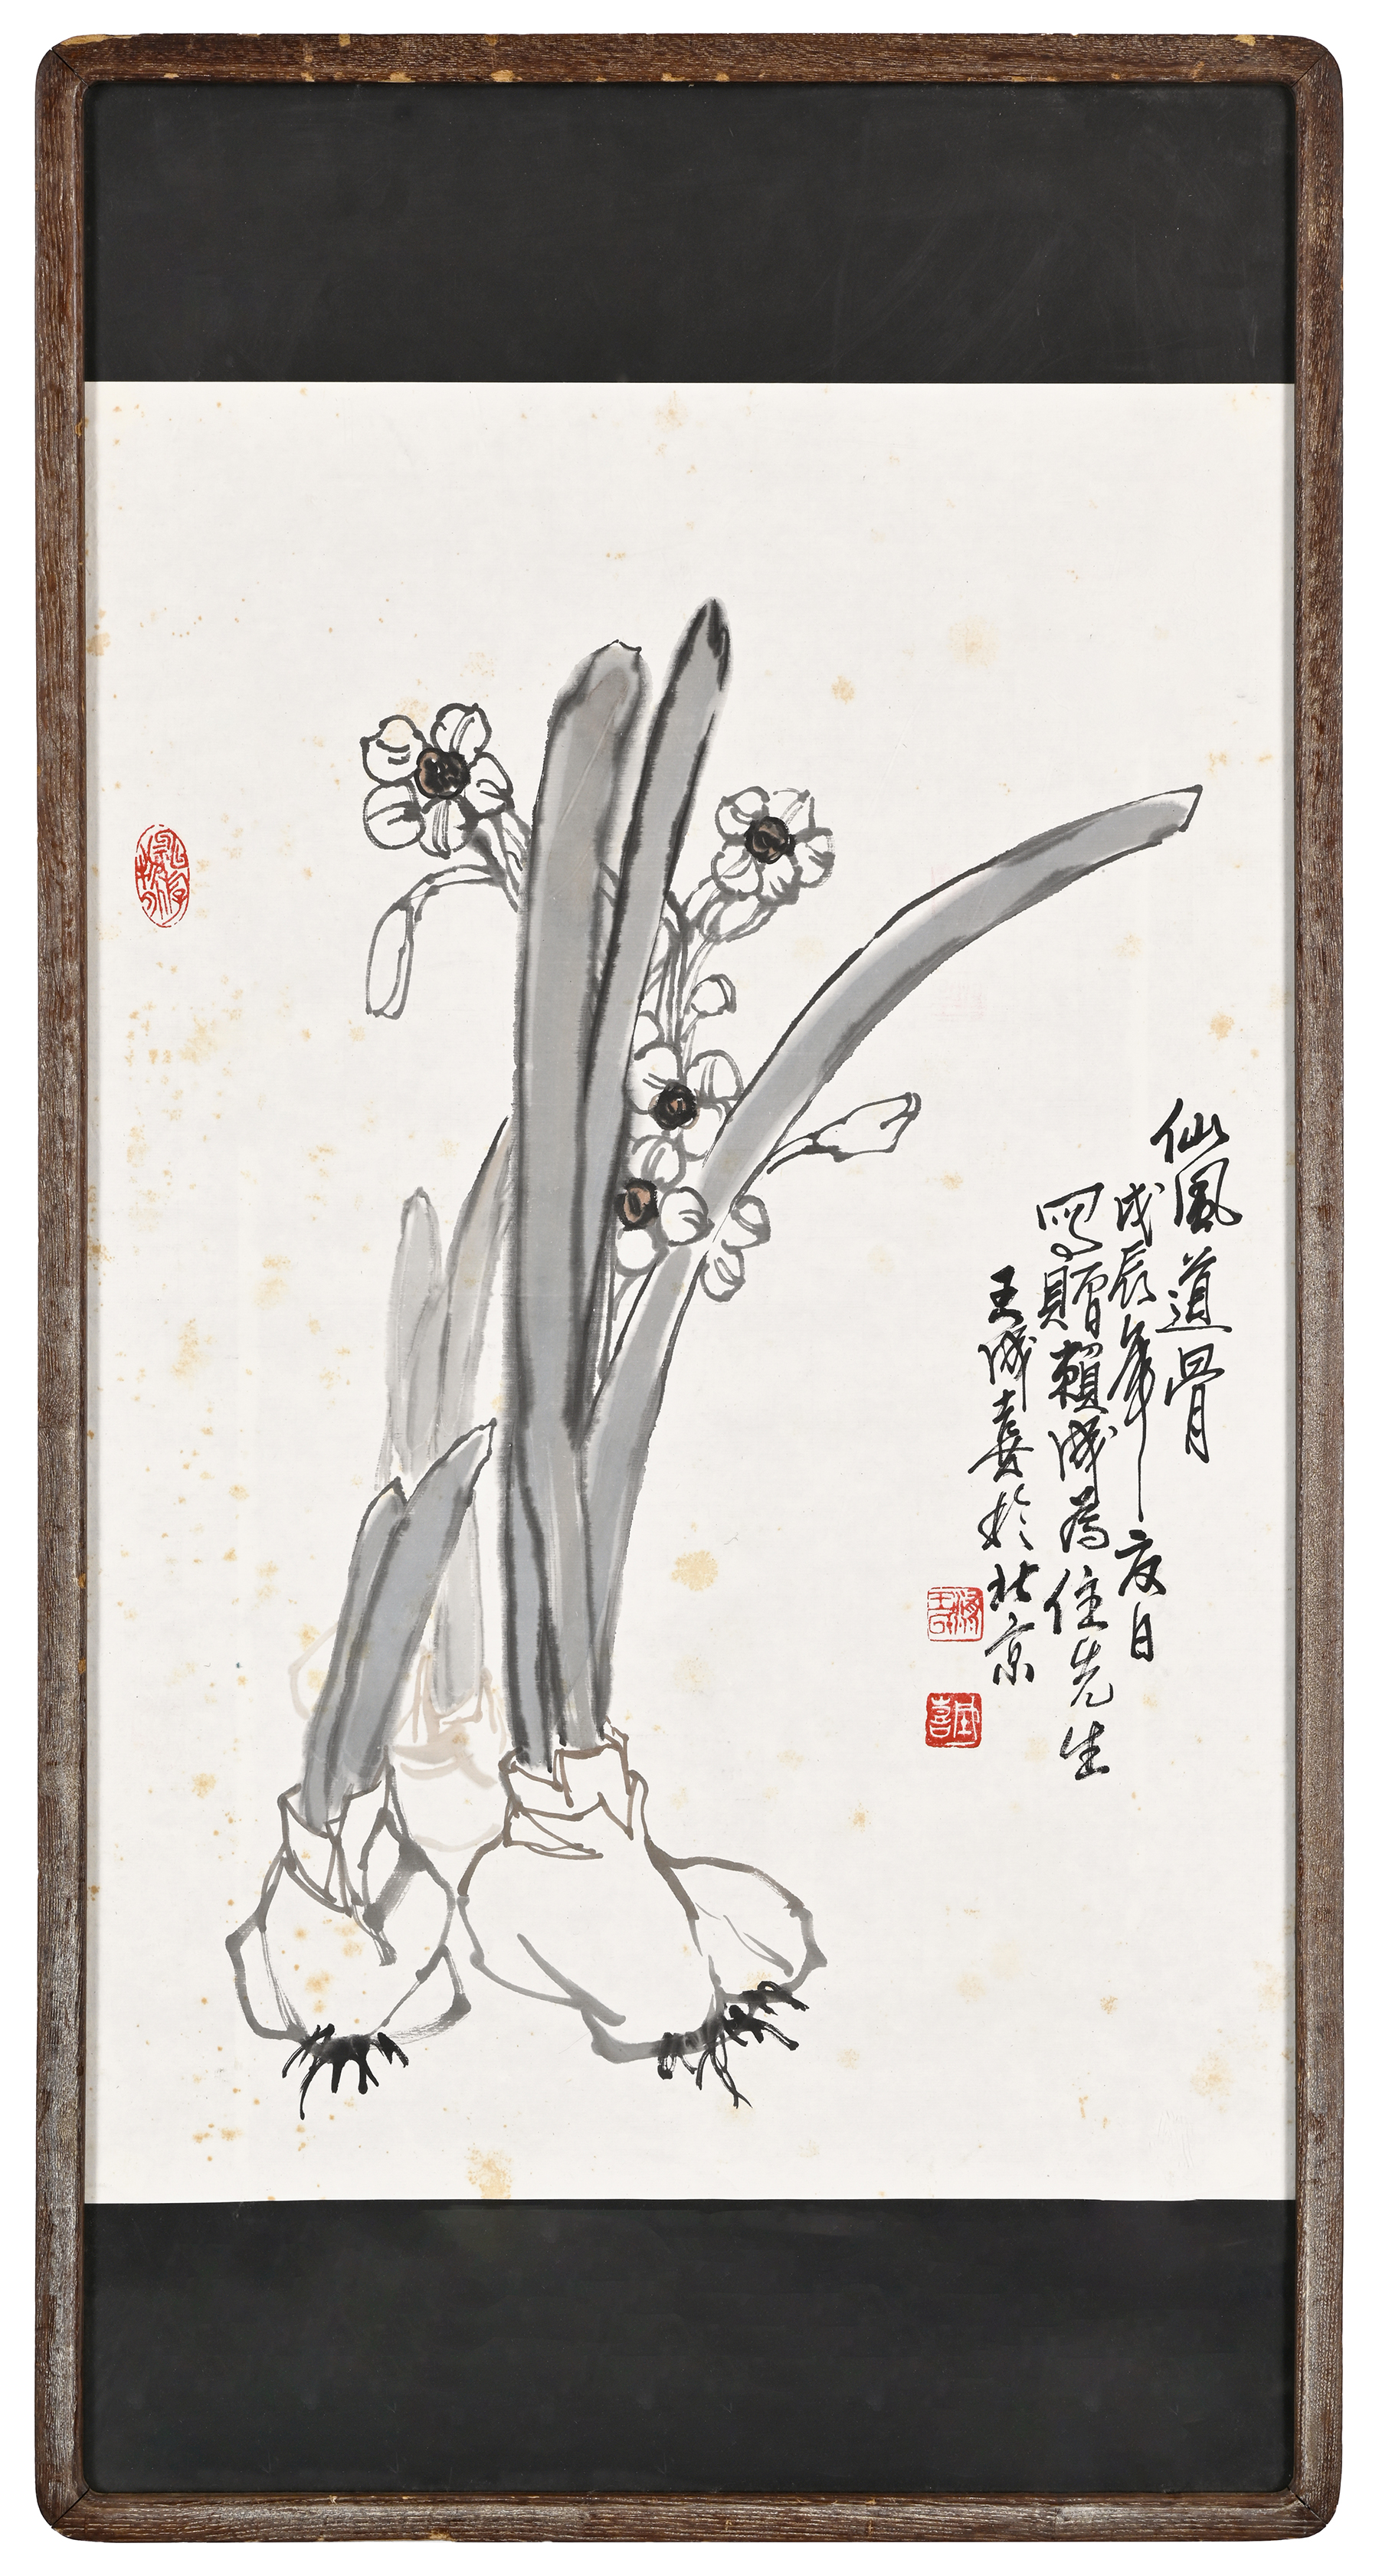 仙風道骨
戊辰年夏日
寫贈賴成為住先生
王成喜於北京